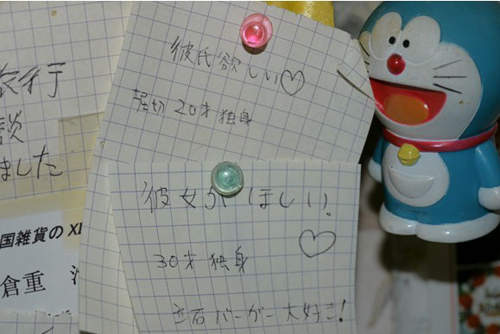 旅行
談
ました
国雑貨の
倉重
彼氏欲しい♡
堀切 20才 独身
彼女がほしい!
♡
30才 独身
立石バーガー 大好き!